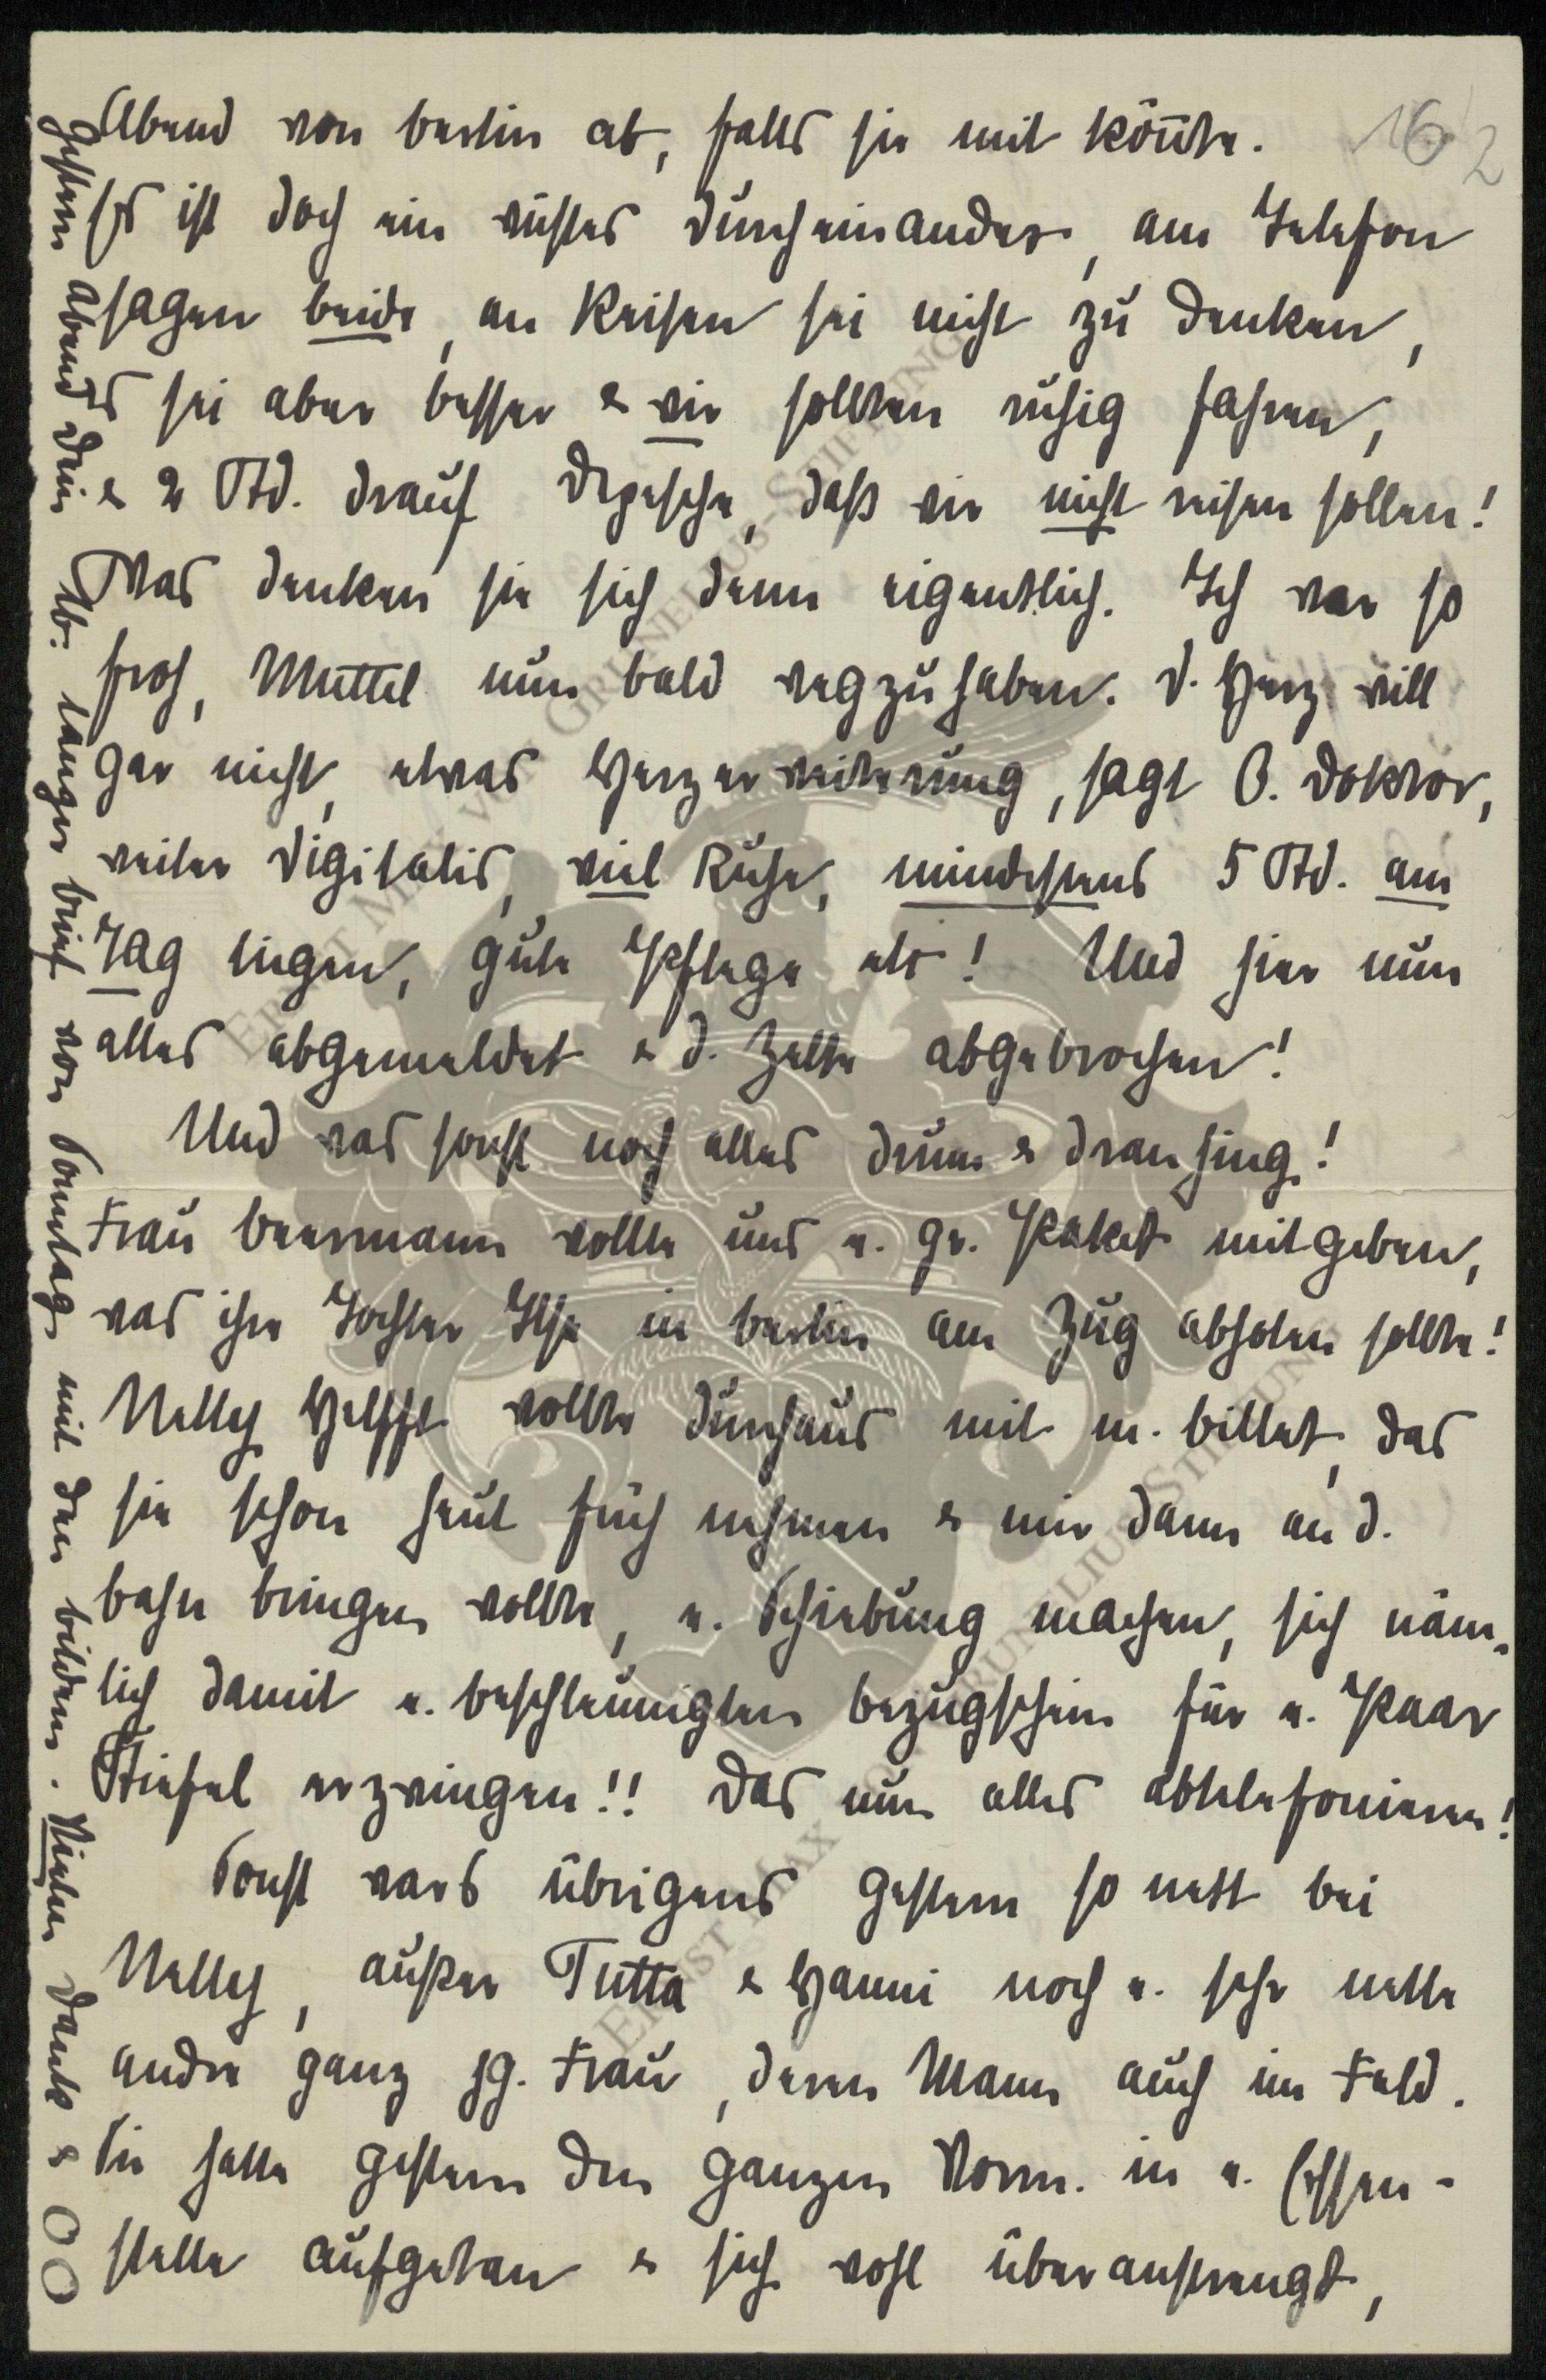 162
Abend von Berlin ab, falls sie mit könnte.
Es ist doch ein wüstes Durcheinander, am Telefon
sagen beide, an Reisen sei nicht zu denken,
es sei aber besser & wir sollten ruhig fahren,
& 2 Std. drauf Depesche, daß wir nicht reisen sollen!
Was denken sie sich denn eigentlich. Ich war so
froh, Muttel nun bald wegzuhaben. D. Herz will
gar nicht, etwas Herzerweiterung, sagt O. Doktor,
weiter Digitalis, viel Ruhe, mindestens 5 Std. am
Tag liegen, gute Pflege etc! Und hier nun
alles abgemeldet & d. Zelte abgebrochen!
Und was sonst noch alles drum & dran hing!
Frau Beermann wollte uns e. gr. Paket mitgeben,
was ihre Tochter Ilse in Berlin am Zug abholen sollte!
Nelly Helfft wollte durchaus mit m. Billet, das
sie schon heut früh nehmen & mir dann an d.
Bahn bringen wollte, e. Schiebung machen, sich näm-
lich damit e. beschleunigten Bezugschein für e. Paar
Stiefel erzwingen!! Das nun alles abtelefonieren!
Sonst wars übrigens gestern so nett bei
Nelly, außer Tutta & Hanni noch e. sehr nette
andre ganz jg. Frau, deren Mann auch im Feld.
Sie hatte gestern den ganzen Vorm. in e. Essen-
stelle aufgetan & sich wohl überanstrengt,
Gestern abend Dein lb. langer Brief von Sonntag mit den Bildern. Vielen Dank & OO
Ernst Max von Grunelius-Stiftung
Ernst Max von Grunelius-Stiftung